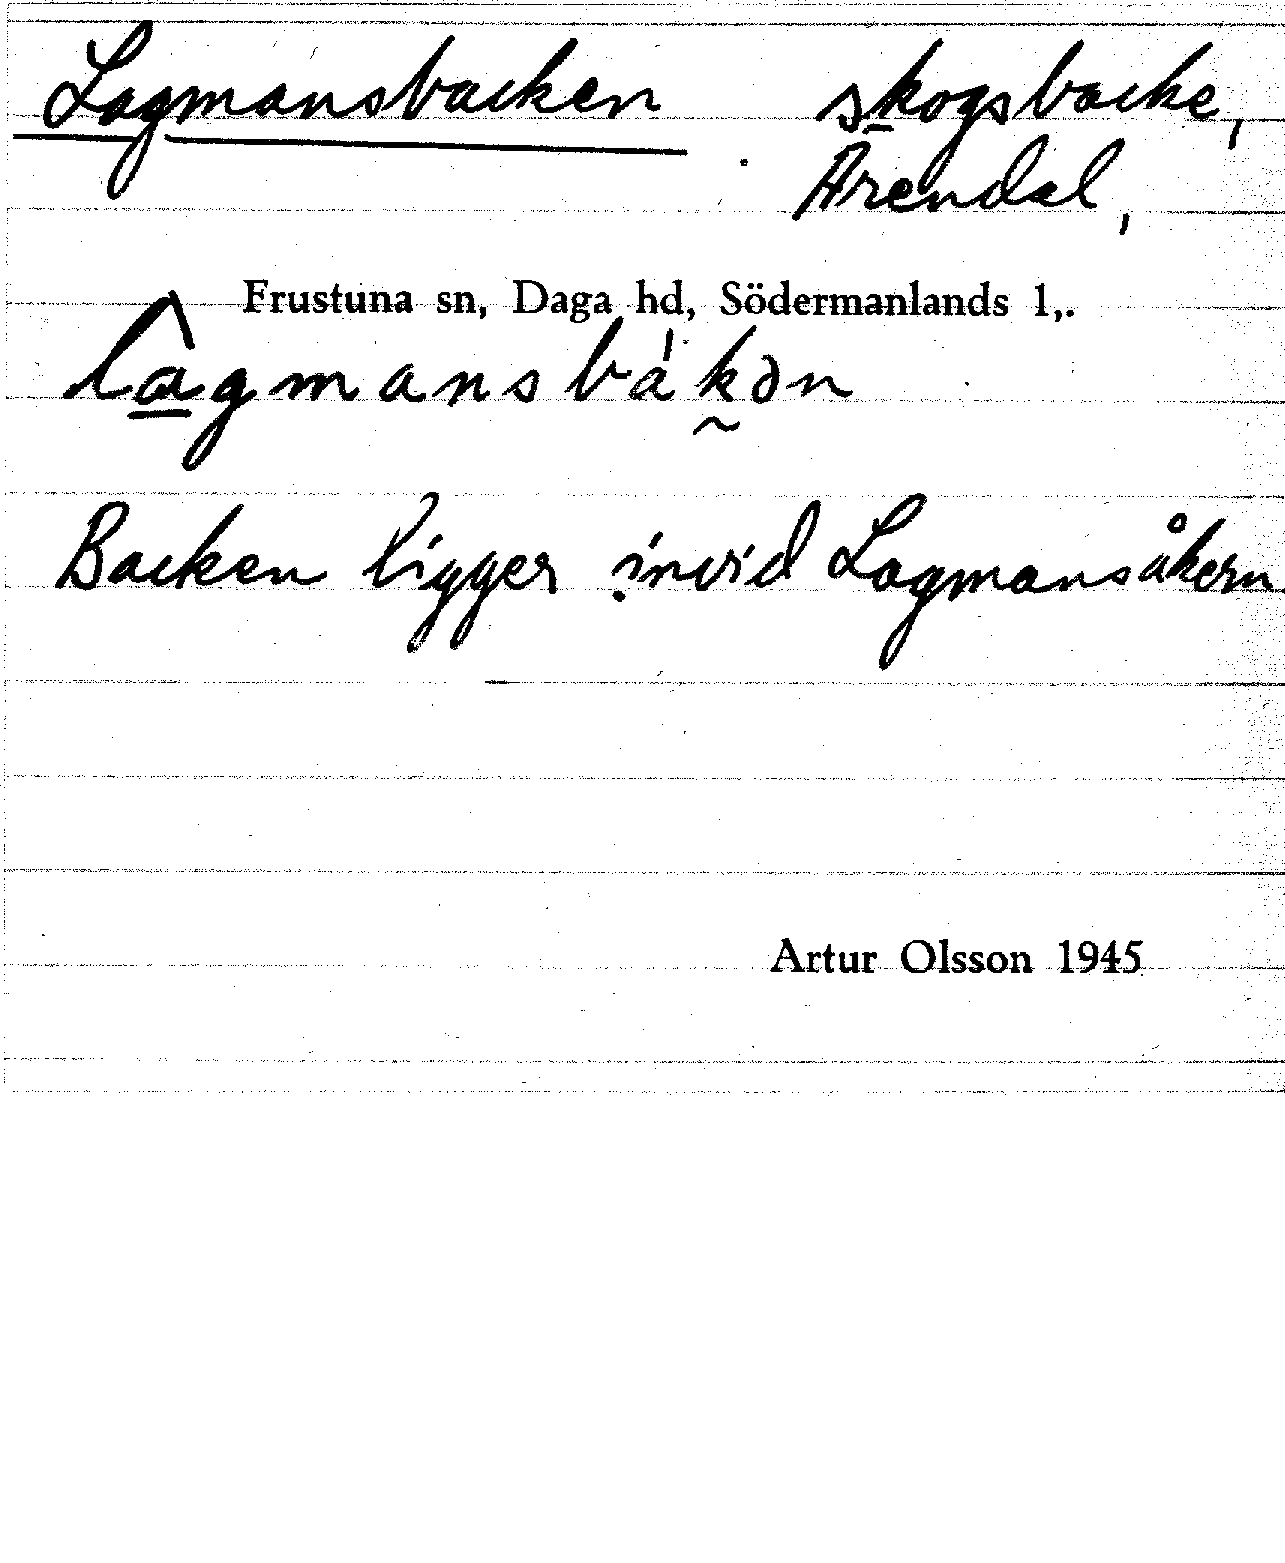 Lagmansbacken skogsbacke,
Ärendal,
Frustuna sn, Daga hd, Södermanlands l,.
lâgmansbàkən
Backen ligger invid Lagmansåkern
Artur Olsson 1945